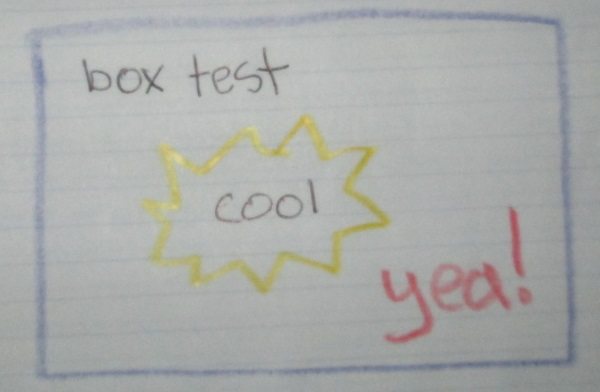 box test
cool
yea!